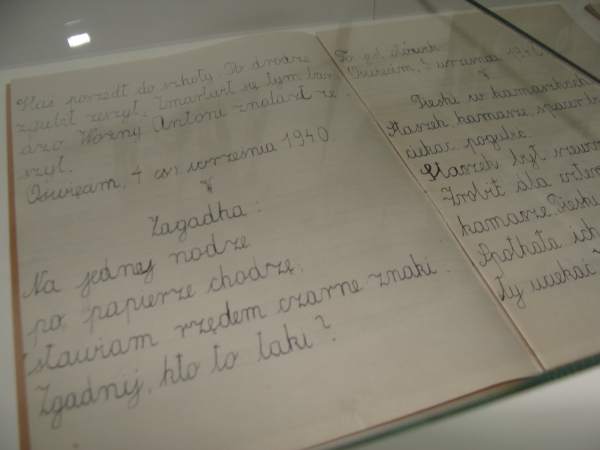 Staś poszedł do szkoły. Po drodze
zgubił zeszyt. Zmartwił się tym bar-
dzo Woźny Antoni znalazł ze-
szyt.
Oświęcim, 4 września 1940
Zagadka:
Na jednej nodze
po papierze chodzę.
Stawiam rzędem czarne znaki.
Zgadnij, kto to taki?
To jest ołówek.
Oświęcim, 5 września 1940
Pieski w kamaszkach
Staszek, kamasze, spacer
ciekać, pogubić.
Staszek był
Zrobił dla
kamasze. Pieski
Spotkała ich
ły uciekać